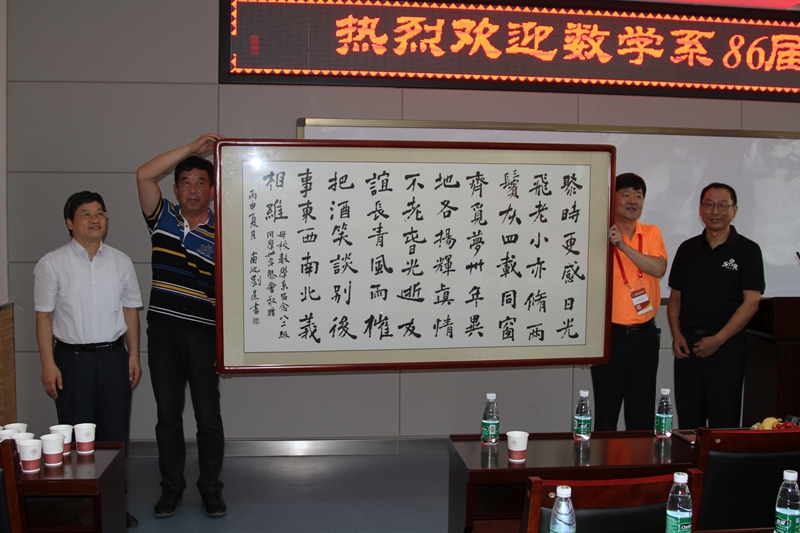 热烈欢迎数学系86届
聚時更感日光
飛老小亦脩兩
鬢灰四載同窗
齊覓夢卅年異
地各揚輝眞情
不老光逝友
誼長青風雨摧
把酒笑談别後
事東西南北義
相維
母校數學系留念八二級
同學卅年聚會敬贈
丙申夏月 劉書